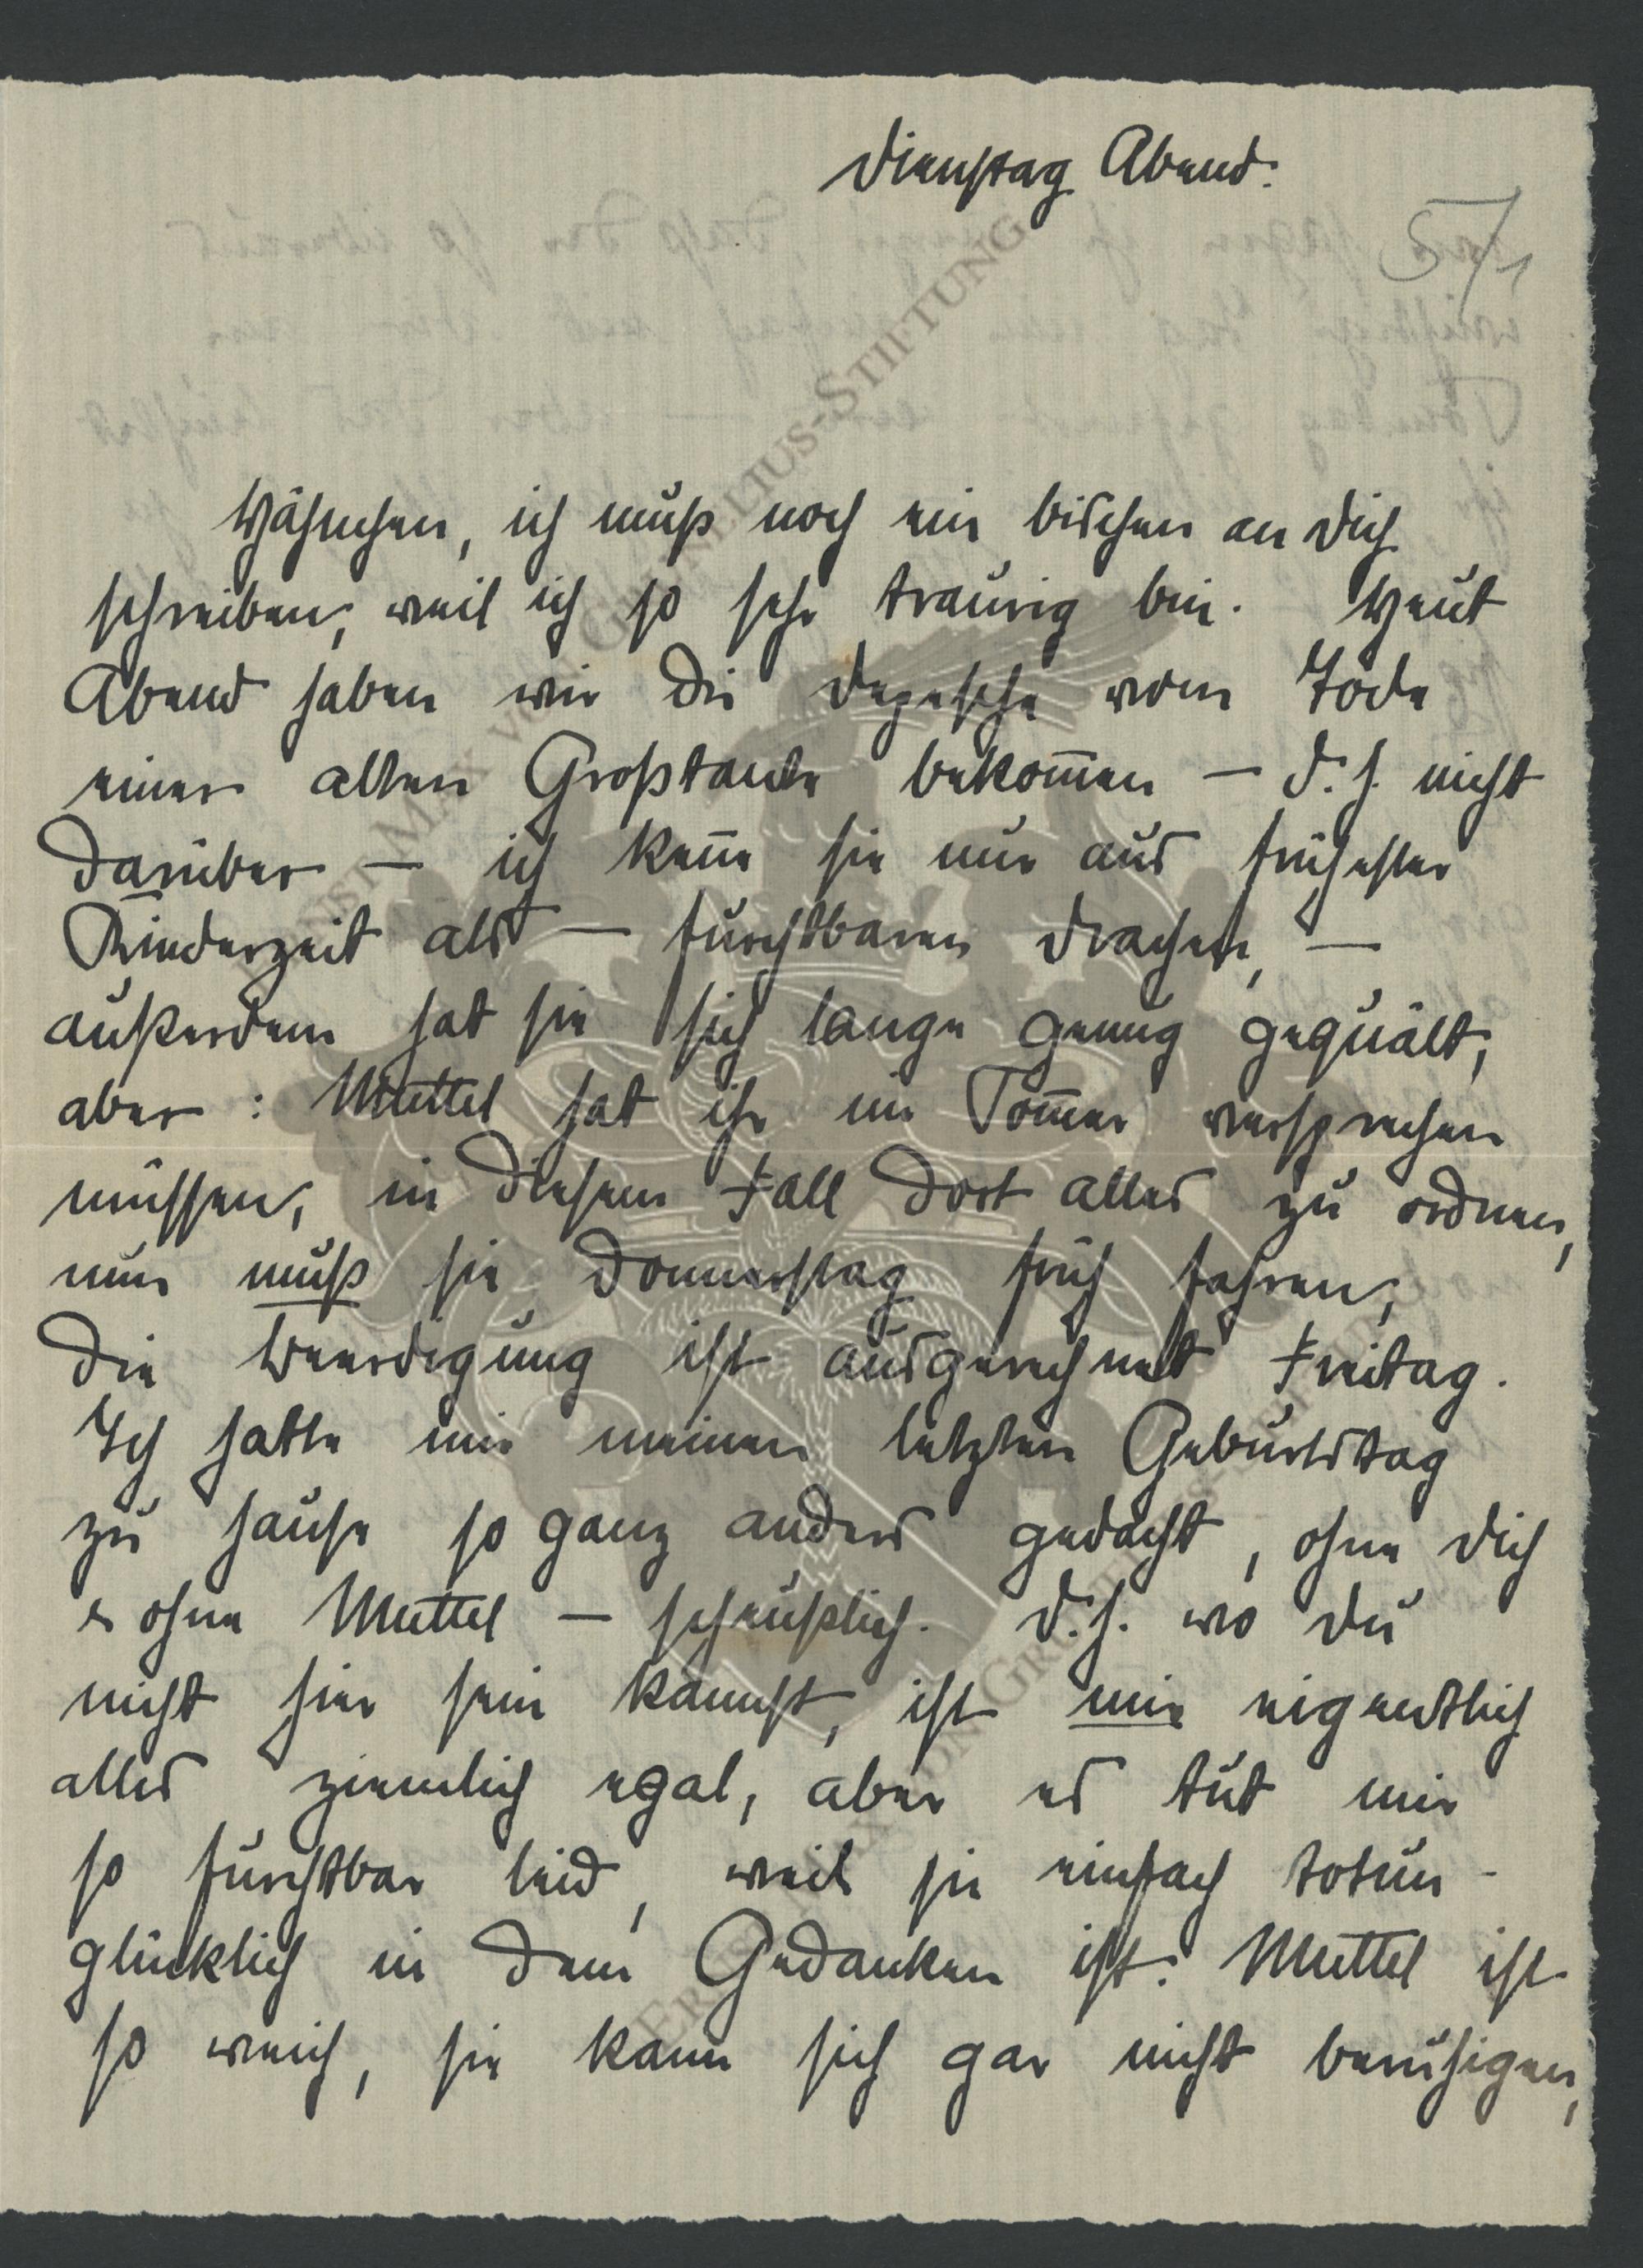 Dienstag Abend.
57/1
Hähnchen, ich muß noch ein bischen an Dich
schreiben, weil ich so sehr traurig bin. Heut
Abend haben wir die Depesche vom Tode
einer alten Großtante bekom̅en – d. h. nicht
darüber – ich ken̅e sie nur aus frühester
Kinderzeit als – furchtbaren Drachen, –
außerdem hat sie sich lange genug gequält,
aber : Muttel hat ihr im Som̅er versprechen
müssen, in diesem Fall dort alles zu ordnen,
nun muß sie Donnerstag früh fahren,
die Beerdigung ist ausgerechnet Freitag.
Ich hatte mir meinen letzten Geburtstag
zu hause so ganz anders gedacht, ohne Dich
u ohne Muttel – scheußlich. D. h. wo Du
nicht hier sein kannst, ist mir eigentlich
alles ziemlich egal, aber es tut mir
so furchtbar leid, weil sie einfach totun-
glücklich in dem Gedanken ist. Muttel ist
so weich, sie kann sich gar nicht beruhigen,
ERNST MAX VON GRUNELIUS-STIFTUNG